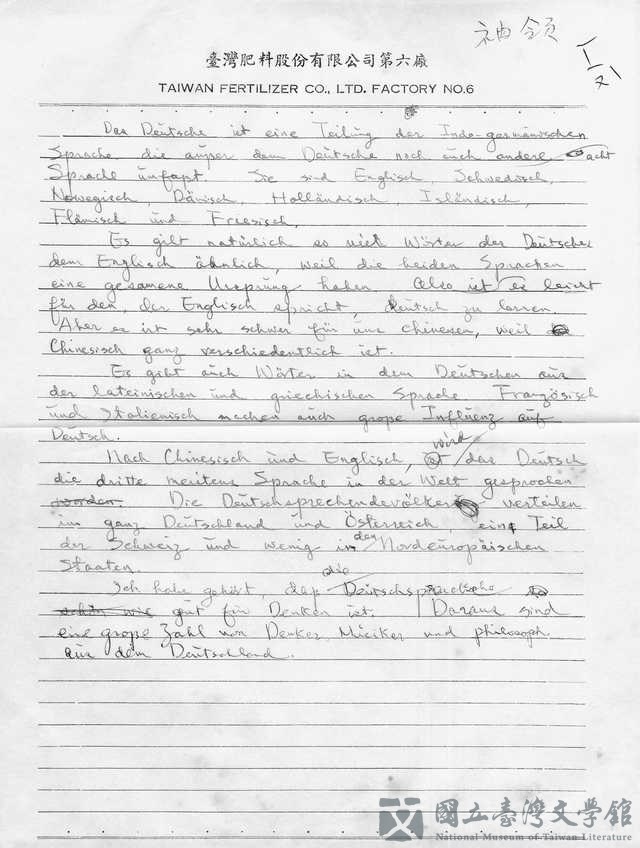 袖領
臺灣肥料股份有限公司第六廠
TAIWAN FERTILIZER CO., LTD. FACTORY NO.6
Das Deutsche ist eine Teilung der Indo-germänischen
Sprache, die auper dem Deutsche noch auch andere acht
Sprache umfapt. Sie sind Englisch, Schwedisch,
Nowegisch, Dänisch, Holländisch, Isländisch,
Flämisch und Freesisch.
Es gilt natürlich so viele Wörter der Deutschen
dem Englisch ähnlich, weil die beiden Sprachen
eine gesamene Ursprung haben. Also ist es leicht
für den, der Englisch spricht, deutsch zu lernen.
Aber es ist sehr schwer für uns chinesen, weil
Chinesisch ganz verschiedentlich ist.
Es gibt auch Wörter in dem Deutschen aus
der lateinischen und griechischen Sprache. Französisch
und Italienisch machen auch grope Influenz auf
Deutsch.
Nach Chinesisch und Englisch, wird das Deutsch
die dritte meistens Sprache in der Welt gesprochen
worden. Die Deutschsprechendevölker verteilen
im ganz Deutschland und Österreich, eine Teil
der Schweiz und wenig in den Nordeuropäischen
Staaten.
Ich habe gehört, dap die Deutschsprache
schön wie gut für Denken ist. Daraus sind
eine grope Zahl von Denker, Musiker und philosoph.
aus dem Deutschland.
國立臺灣文學館
National Museum of Taiwan Literature